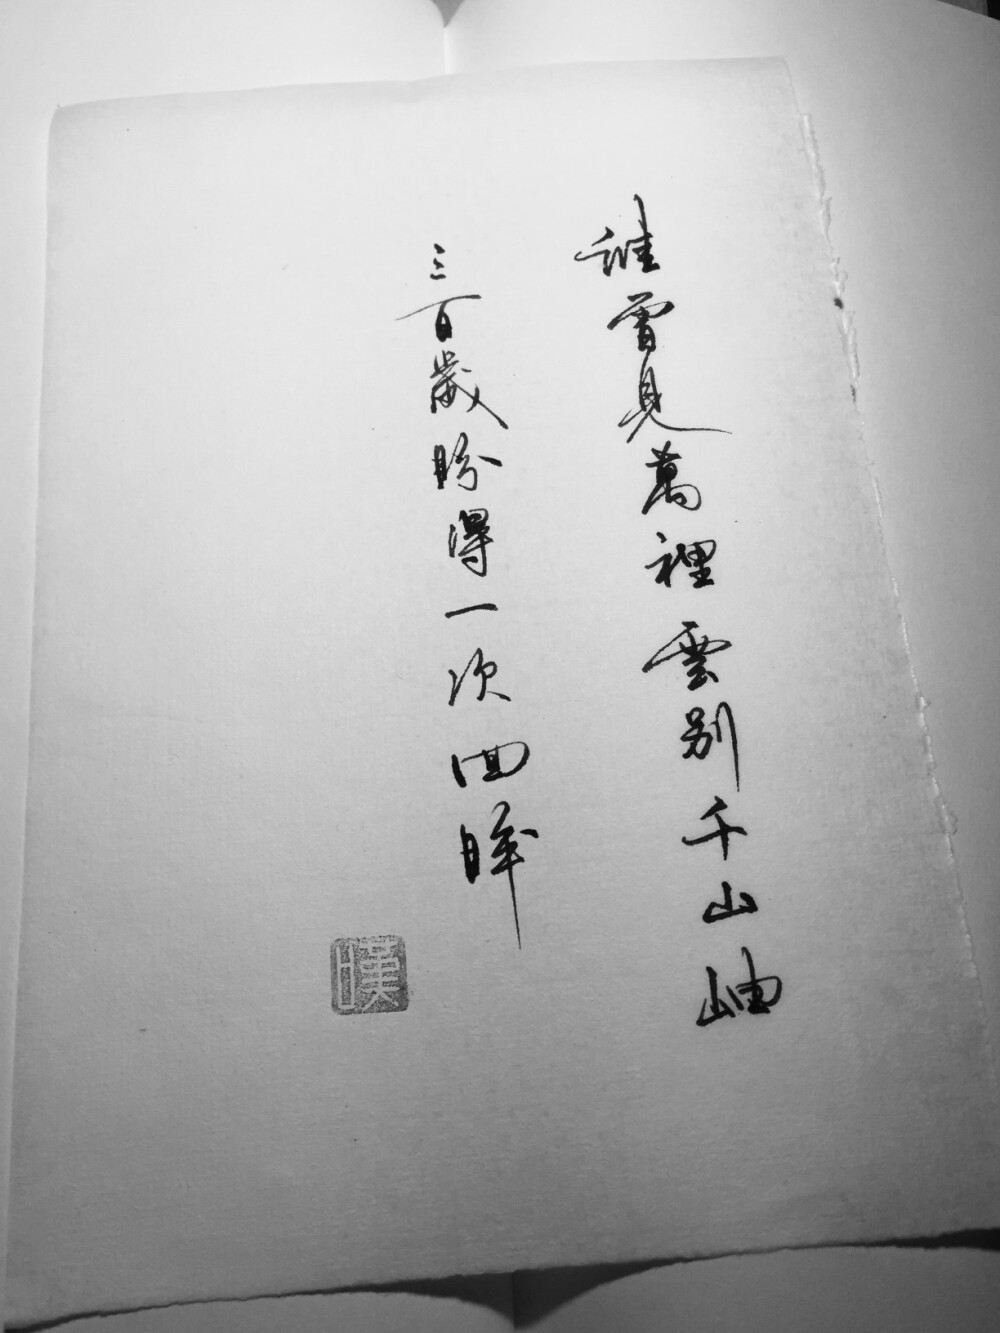 誰曾見萬裡雲別千山岫
三百歲盼得一次回眸